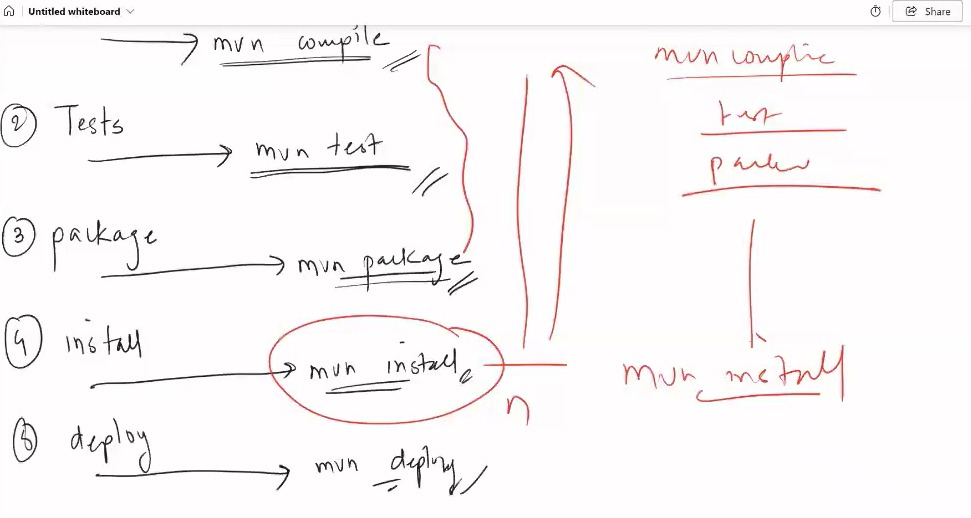 Untitled whiteboard
Share
mvn compile
② Tests
mvn test
③ package
mvn package
④ install
mvn install
⑤ deploy
mvn deploy
n
mvn complie
test
mvn install